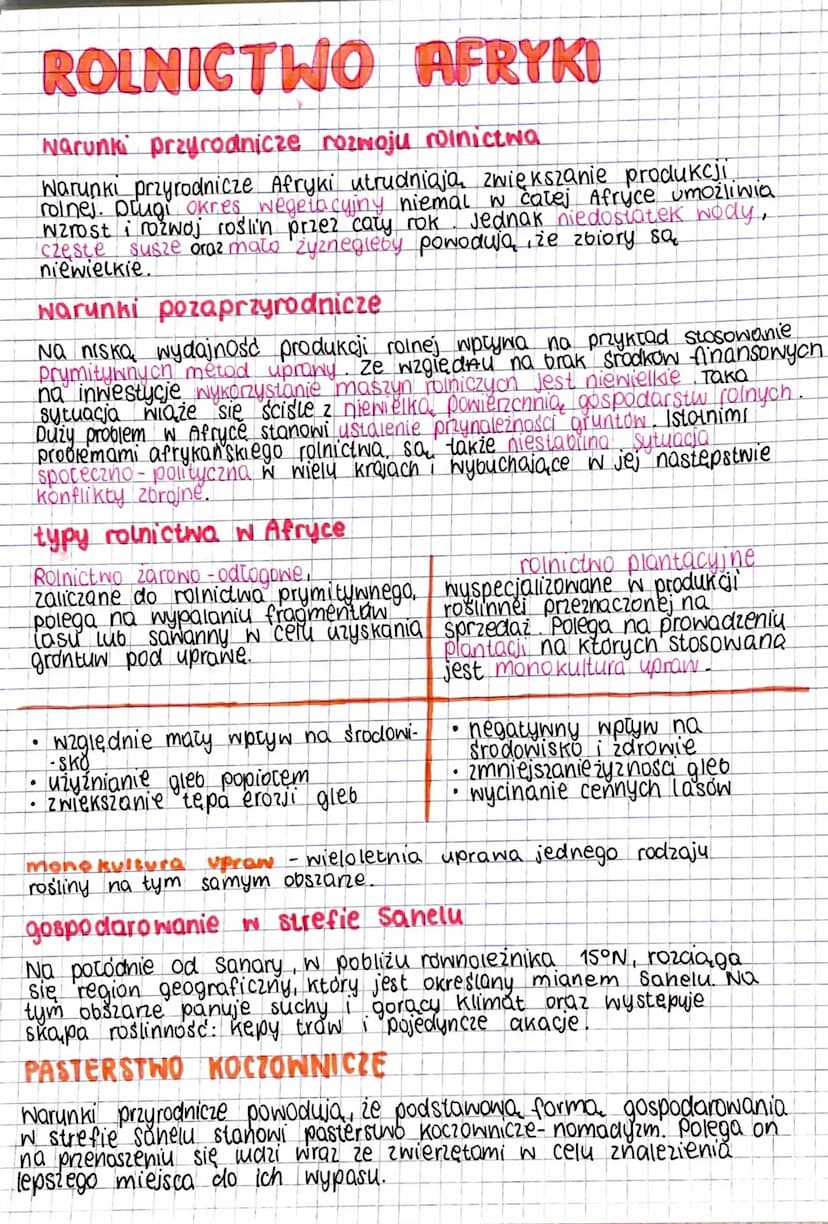 ROLNICTWO AFRYKI
warunki przyrodnicze rozwoju rolnictwa
Warunki przyrodnicze Afryki utrudniają zwiększanie produkcji
rolnej. Długi okres wegetacyjny niemal w całej Afryce umożliwia
wzrost i rozwój roślin przez cały rok. Jednak niedostatek wody,
częste susze oraz mało żyznegleby powodują, że zbiory są
niewielkie.
warunki pozaprzyrodnicze
Na niską wydajność produkcji rolnej wpływa na przykład stosowanie
prymitywnych metod uprawy. Ze względu na brak środków finansowych
na inwestycje wykorzystanie maszyn rolniczych jest niewielkie. Taka
sytuacja wiąże się ściśle z niewielką powierzchnią gospodarstw rolnych.
Duży problem w Afryce stanowi ustalenie przynależności gruntów. Istotnimi
problemami afrykańskiego rolnictwa są także niestabilna sytuacja
społeczno-polityczna w wielu krajach i wybuchające w jej następstwie
konflikty zbrojne.
typy rolnictwa w Afryce
Rolnictwo żarowo-odłogowe,
zaliczane do rolnictwa prymitywnego,
polega na wypalaniu fragmentów
lasu lub sawanny w celu uzyskania
grontuw pod uprawę.
rolnictwo plantacyjne
wyspecjalizowane w produkcji
roślinnej przeznaczonej na
sprzedaż. Polega na prowadzeniu
plantacji na których stosowana
jest monokultura upraw.
• względnie mały wpływ na środowi-
-sko
• użyźnianie gleb popiołem
• zwiększanie tępa erozji gleb
• negatywny wpływ na
środowisko i zdrowie
• zmniejszanie żyzności gleb
• wycinanie cennych lasów
monokultura upraw - wieloletnia uprawa jednego rodzaju
rośliny na tym samym obszarze.
gospodarowanie w strefie Sahelu
Na połódnie od Sahary, w pobliżu równoleżnika 15°N, rozciąga
się region geograficzny, który jest określany mianem Sahelu. Na
tym obszarze panuje suchy i gorący klimat oraz występuje
skąpa roślinność: kępy traw i pojedyncze akacje.
PASTERSTWO KOCZOWNICZE
Warunki przyrodnicze powodują, że podstawową formą gospodarowania
w strefie Sahelu stanowi pasterstwo koczownicze-nomadyzm. Polega on
na przenoszeniu się ludzi wraz ze zwierzętami w celu znalezienia
lepszego miejsca do ich wypasu.